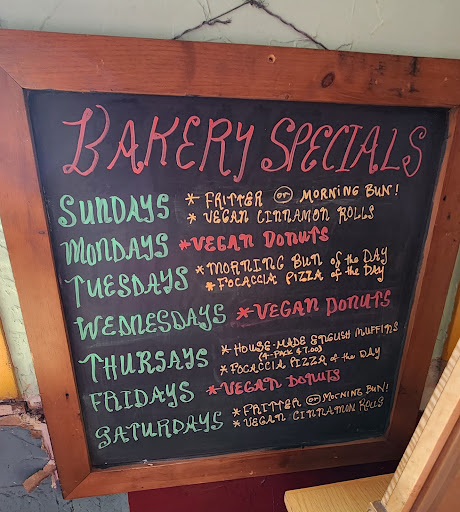 BAKERY SPECIALS
SUNDAYS * FRITTER or MORNING BUN!
* VEGAN CINNAMON ROLLS
MONDAYS * VEGAN DONUTS
TUESDAYS * MORNING BUN of the DAY
* FOCACCIA PIZZA of the DAY
WEDNESDAYS * VEGAN DONUTS
THURSAYS * HOUSE-MADE ENGLISH MUFFINS
(4-PACK $7.00)
* FOCACCIA PIZZA of the DAY
FRIDAYS * VEGAN DONUTS
SATURDAYS * FRITTER or MORNING BUN!
* VEGAN CINNAMON ROLLS